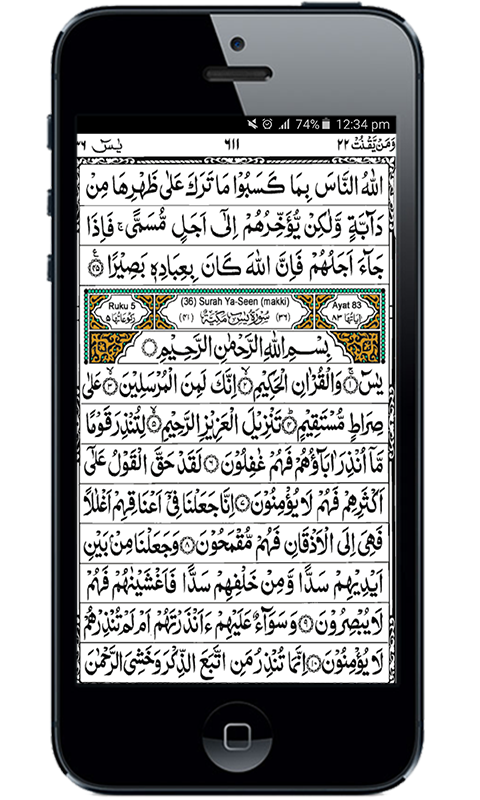 74% 12:34 pm
وَمَنْ يَّقْنُتْ ٢٢ ٦١١ يٰسٓ ٣٦
اللهُ النَّاسَ بِمَا كَسَبُوْا مَا تَرَكَ عَلٰى ظَهْرِهَا مِنْ
دَآبَّةٍ وَّلٰكِنْ يُّؤَخِّرُهُمْ اِلٰٓى اَجَلٍ مُّسَمًّى ۚ فَاِذَا
جَآءَ اَجَلُهُمْ فَاِنَّ اللهَ كَانَ بِعِبَادِهٖ بَصِيْرًا ﴿٤٥﴾
Ruku 5 (36) Surah Ya-Seen (makki) Ayat 83
اٰيَاتُهَا ٨٣ (٣٦) سُوْرَةُ يٰسٓ مَكِّيَّةٌ (٤١) رُكُوْعَاتُهَا ٥
بِسْمِ اللهِ الرَّحْمٰنِ الرَّحِيْمِ
يٰسٓ ﴿١﴾ وَالْقُرْاٰنِ الْحَكِيْمِ ﴿٢﴾ اِنَّكَ لَمِنَ الْمُرْسَلِيْنَ ﴿٣﴾ عَلٰى
صِرَاطٍ مُّسْتَقِيْمٍ ﴿٤﴾ تَنْزِيْلَ الْعَزِيْزِ الرَّحِيْمِ ﴿٥﴾ لِتُنْذِرَ قَوْمًا
مَّآ اُنْذِرَ اٰبَآؤُهُمْ فَهُمْ غٰفِلُوْنَ ﴿٦﴾ لَقَدْ حَقَّ الْقَوْلُ عَلٰٓى
اَكْثَرِهِمْ فَهُمْ لَا يُؤْمِنُوْنَ ﴿٧﴾ اِنَّا جَعَلْنَا فِيْٓ اَعْنَاقِهِمْ اَغْلٰلًا
فَهِيَ اِلَى الْاَذْقَانِ فَهُمْ مُّقْمَحُوْنَ ﴿٨﴾ وَجَعَلْنَا مِنْۢ بَيْنِ
اَيْدِيْهِمْ سَدًّا وَّمِنْ خَلْفِهِمْ سَدًّا فَاَغْشَيْنٰهُمْ فَهُمْ
لَا يُبْصِرُوْنَ ﴿٩﴾ وَسَوَآءٌ عَلَيْهِمْ ءَاَنْذَرْتَهُمْ اَمْ لَمْ تُنْذِرْهُمْ
لَا يُؤْمِنُوْنَ ﴿١٠﴾ اِنَّمَا تُنْذِرُ مَنِ اتَّبَعَ الذِّكْرَ وَخَشِيَ الرَّحْمٰنَ